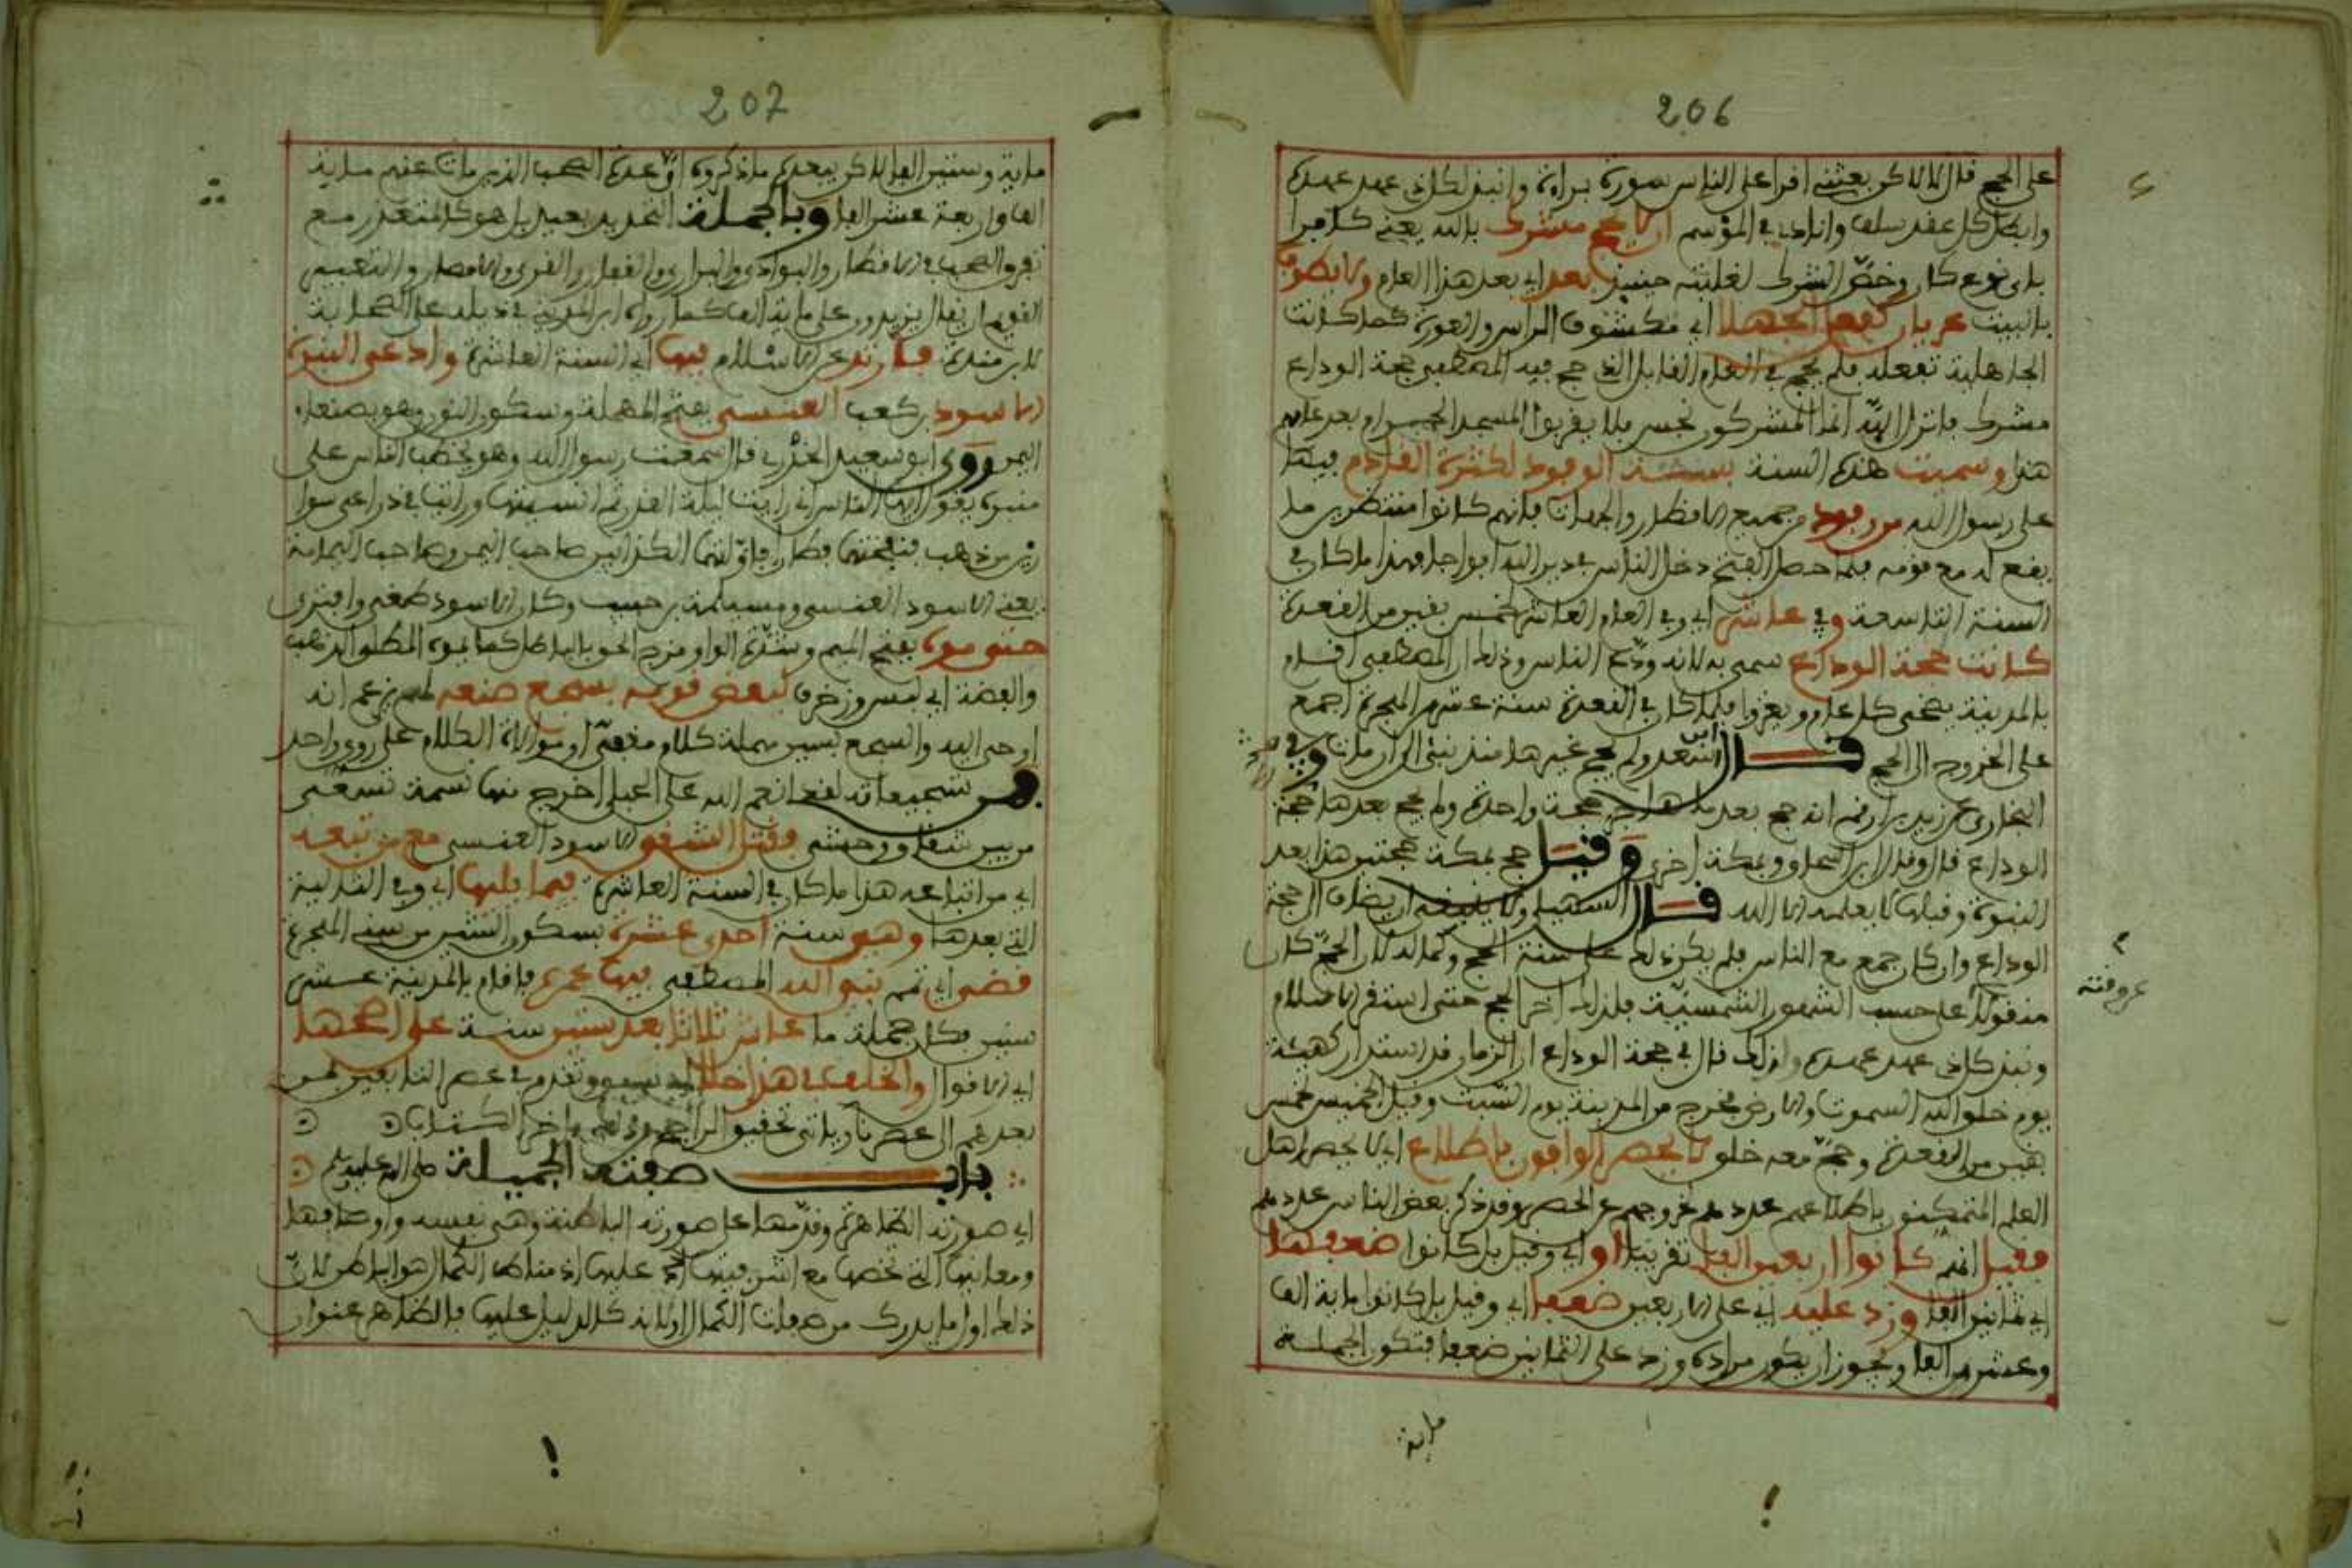 206
على الحج فقال لا لاكن بعثني أقرأ على الناس سورة براءة وأنبذ لكل ذي عهد عهده
وأبطل كل عقد سلف وأنادي في الموسم أن لا يحج مشرك بالله يعني كافرا
بأي نوع كان وخص الشرك لغلبته حينئذ بعد أي بعد هذا العام ولا يطوف
بالبيت عريان كفعل الجهلا أي مكشوف الراس والعورة كما كانت
الجاهلية تفعله فلم يحج في العام القابل الذي حج فيه المصطفى حجة الوداع
مشرك فأنزل الله إنما المشركون نجس فلا يقربوا المسجد الحرام بعد عامهم
هذا وسميت هذه السنة بسنة الوفود لكثرة القادم فيها
على رسول الله من وفود من جميع الأقطار والجهات فإنهم كانوا منتظرين ما
يقع له مع قومه فلما حصل الفتح دخل الناس في دين الله أفواجا فهذا ما كان في
السنة التاسعة وفي عاشر أي وفي العام العاشر لخمس بقين من القعدة
كانت حجة الوداع سمي به لأنه ودع الناس وذلك أن المصطفى أقام
بالمدينة يضحي كل عام ويغزو فلما كان في القعدة سنة عشر من الهجرة أجمع
على الخروج إلى الحج قال ابن سعد ولم يحج غيرها منذ نبئ إلى أن مات وفي
البخاري عن زيد بن أرقم أنه حج بعد ما هاجر حجة واحدة ولم يحج بعدها حجة
الوداع قال وقال ابن إسحاق وبمكة أخرى وقيل حج بمكة حجتين هذا بعد
النبوة وقبلها لا يعلمه إلا الله قال السهيلي ولا ينبغي أن يضاف إلى حجة
الوداع وإن كان حج مع الناس فلم يكن ذلك على سنة الحج وكماله لأن الحج كان
منقولا على حسب الشهور الشمسية فلذلك أخر الحج حتى استقر الإسلام
ونبذ كل ذي عهد عهده ولذلك قال في حجة الوداع إن الزمان قد استدار كهيئته
يوم خلق الله السموات والأرض فخرج من المدينة يوم السبت وقيل الخميس لخمس
بقين من القعدة وحج معه خلق لا يحصر الوافون باطلاع أي لا يحصر أهل
العلم المتمكنون باطلاعهم عددهم لخروجهم عن الحصر وقد ذكر بعض الناس عددهم
فقيل إنهم كانوا أربعين ألفا تقريبا أو أي وقيل بل كانوا ضعفها
أي ثمانين ألفا وزد عليه أي على الأربعين ضعفا أي وقيل بل كانوا مائة ألف
وعشرين ألفا ويجوز أن يكون مراده وزد على الثمانين ضعفا فتكون الجملة
مائة
عروفته
207
مائة وستين ألفا لاكن يبعده ما ذكروه أن عدة الصحب الذين مات عنهم مائة
ألف وأربعة عشر ألفا وبالجملة التحديد بعيد بل هو كالمتعذر مع
تفرق الصحب في الأقطار والبوادي والبراري والقفار والقرى والأمصار والتعبير
القويم أن يقال يزيدون على مائة ألف كما رواه ابن المديني في ذيله على الصحابة
لابن مندة فارتد عن الإسلام فيها أي السنة العاشرة وادعى النبوة
الأسود بن كعب العنسي بفتح المهملة وسكون النون وهو بصنعاء
اليمن وروى أبو سعيد الخدري قال سمعت رسول الله وهو يخطب الناس على
منبره يقول أيها الناس إني رأيت ليلة القدر ثم أنسيتها ورأيت في ذراعي سوا
رين من ذهب فنفختهما فطارا فأولتهما الكذابين صاحب اليمن وصاحب اليمامة
يعني الأسود العنسي ومسيلمة بن حبيب وكان الأسود طغى وافترى
حتى موه بفتح الميم وشدة الواو مزج الحق بالباطل كما يموه المطلي الذهب
والفضة أي لبس وزخرف لبعض قومه بسجع صنعه لهم يزعم أنه
أوحي إليه والسجع بسين مهملة كلام مقفى أو موالاة الكلام على روي واحد
فمن سجيعاته لقد أنعم الله على الحبلى أخرج منها نسمة تسعى
من بين شغاف وحشى فقتل الشقي الأسود العنسي مع من تبعه
أي من أتباعه هذا ما كان في السنة العاشرة فيما يليها أي وفي التالية
التي بعدها وهي سنة احدى عشرة بسكون الشين من سني الهجرة
قضى أي تمم نبي الله المصطفى فيها عمره فأقام بالمدينة عشر
سنين فكان جملة ما عاش ثلاثا بعد ستين سنة على أصحها
أي الأقوال والخلف في هذا خلا أي سبق وتقدم في عصر التابعين فمن
بعدهم إلى عصرنا ويأتي تحقيق الراجح من ذلك في آخر الكتاب
باب صفته الجميلة صلى الله عليه وسلم
أي صورته الظاهرة وقدمها على صورته الباطنة وهي نفسه وأوصافها
ومعانيها التي تخصها مع أشرفيتها عليها إذ مناط الكمال هو الباطن لأن
ذلك أول ما يدرك من صفات الكمال أو لأنه كالدليل عليها فالظاهر عنوان